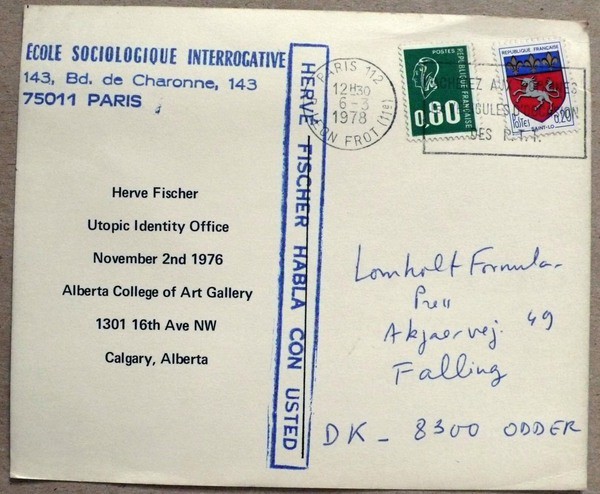 ÉCOLE SOCIOLOGIQUE INTERROGATIVE
143, Bd. de Charonne, 143
75011 PARIS
HERVÉ FISCHER HABLA CON USTED
PARIS 112
12H30
6-3
1978
FROT (11e)
POSTES
REPUBLIQUE FRANÇAISE
0,80
REPUBLIQUE FRANÇAISE
POSTES
0,20
SAINT-LO
DES P.T.T.
Herve Fischer
Utopic Identity Office
November 2nd 1976
Alberta College of Art Gallery
1301 16th Ave NW
Calgary, Alberta
Lomholt Formular
Press
Akjaervej. 49
Falling
DK - 8300 ODDER